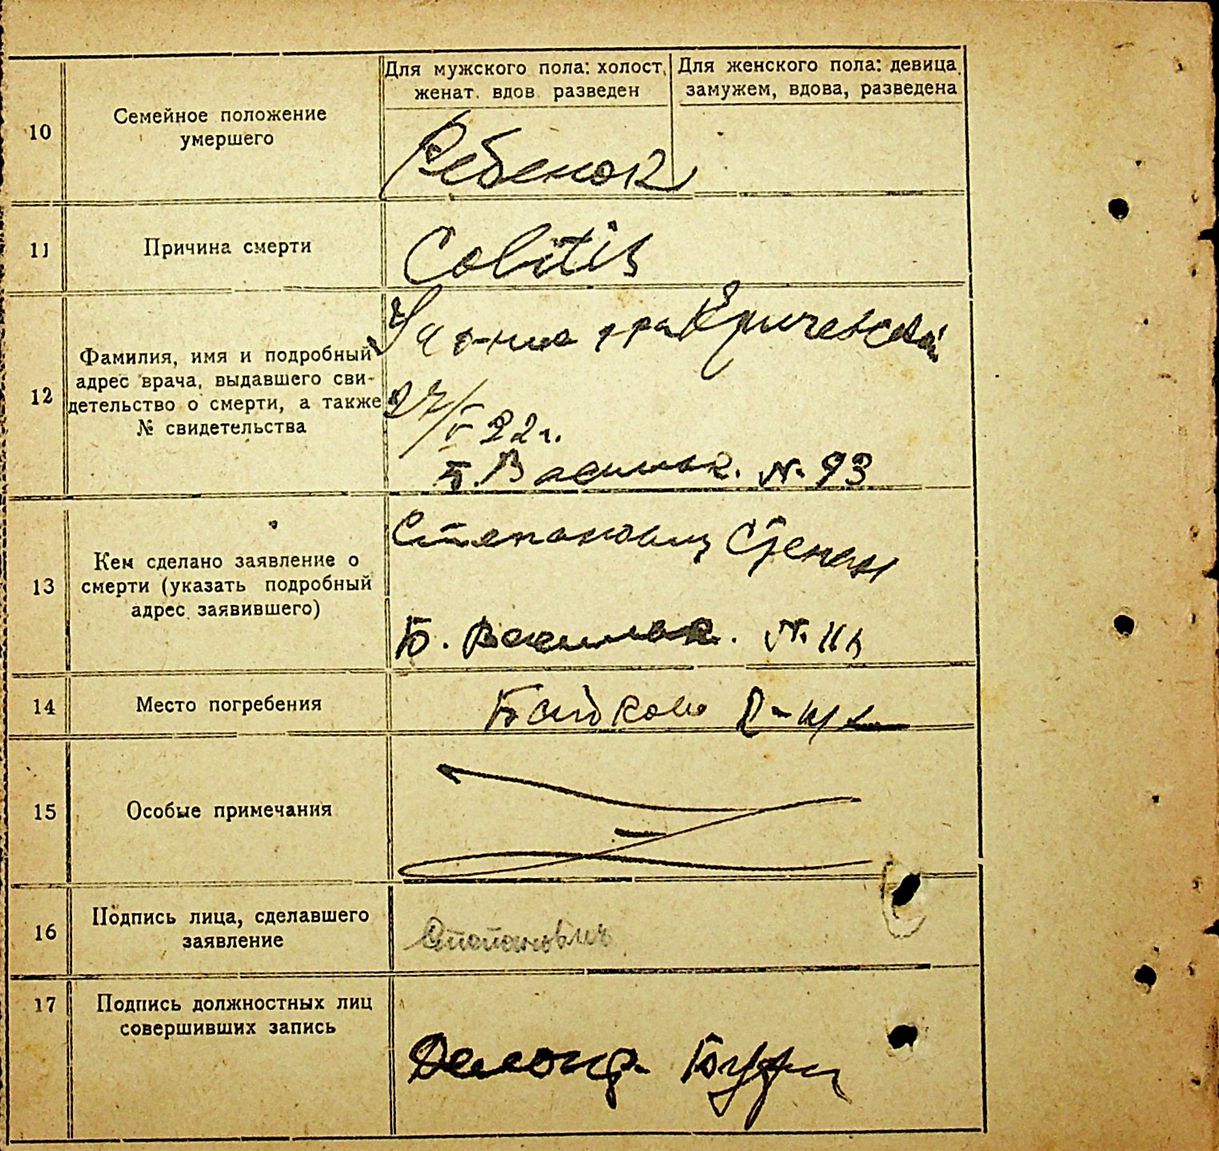 Для мужского пола: холост,
женат. вдов разведен
Для женского пола: девица,
замужем, вдова, разведена
10
Семейное положение
умершего
Ребенок
11
Причина смерти
Colitis
12
Фамилия, имя и подробный
адрес врача, выдавшего сви-
детельство о смерти, а также
№ свидетельства
27/V 22 г.
Б. Васильк. № 93
13
Кем сделано заявление о
смерти (указать подробный
адрес заявившего)
Степанович Степан
Б. Васильк. №
14
Место погребения
Байково
15
Особые примечания
16
Подпись лица, сделавшего
заявление
Степановичъ
17
Подпись должностных лиц
совершивших запись
Делопр.